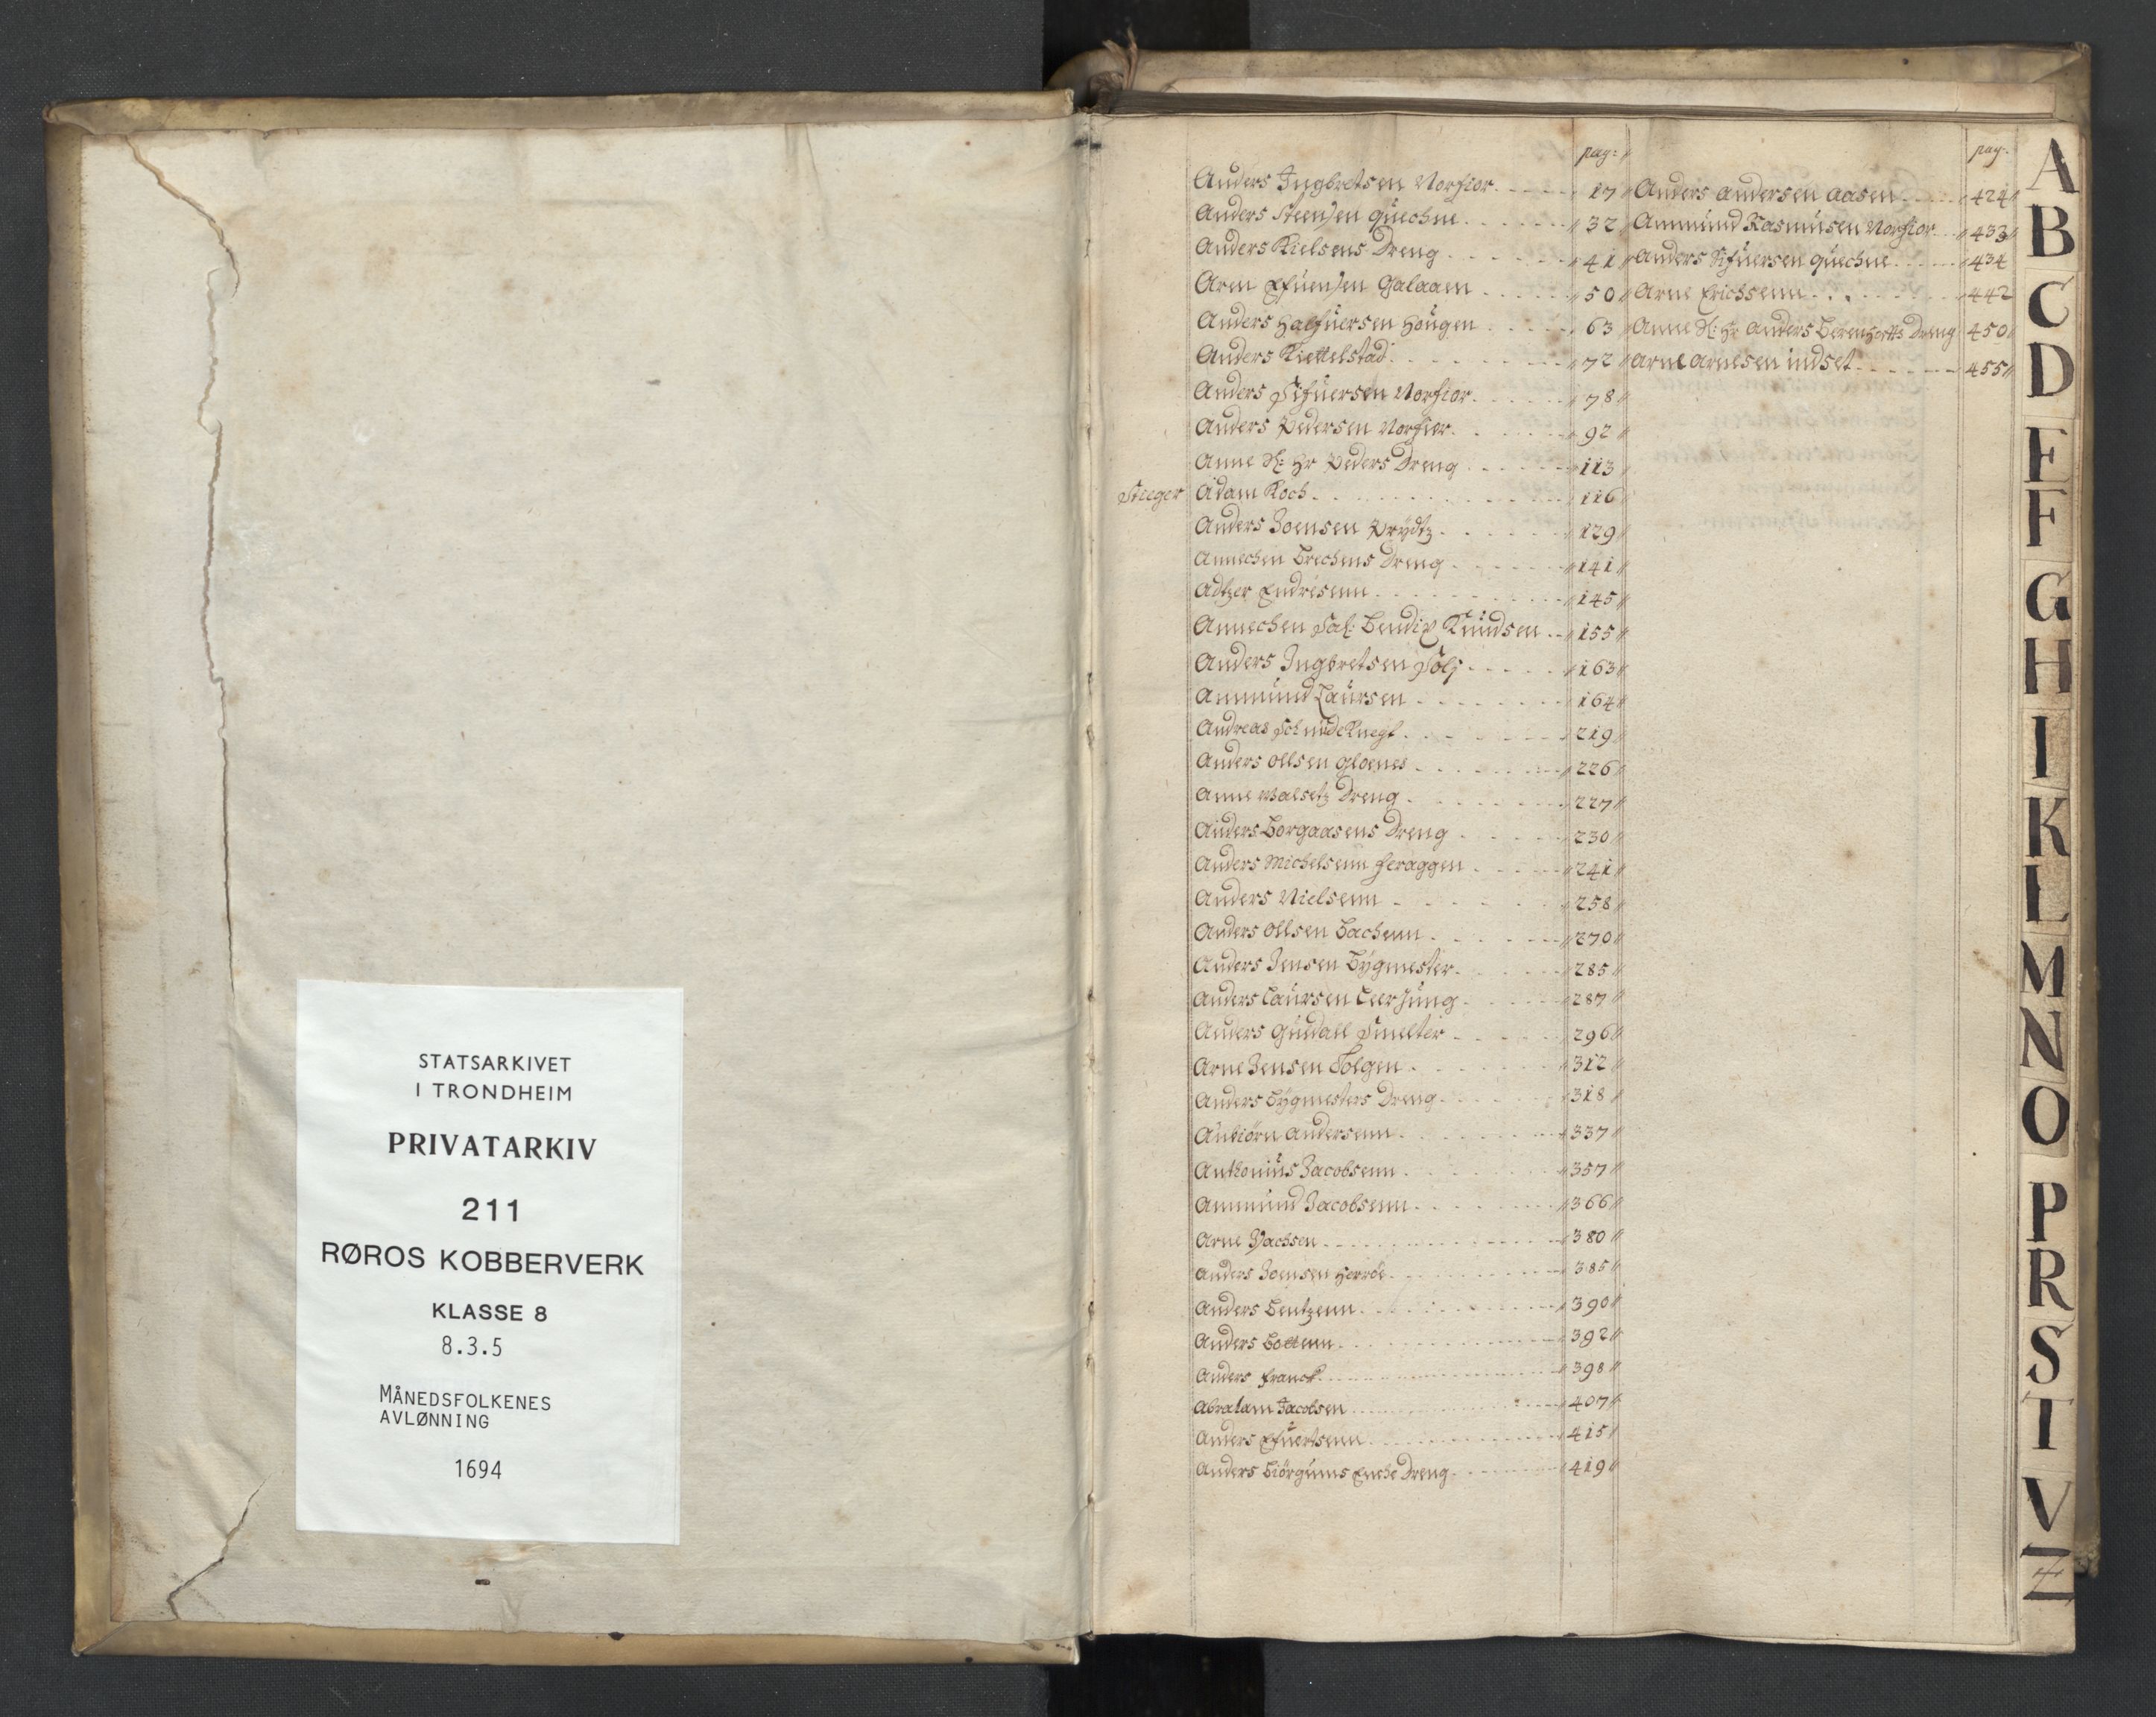 STATSARKIVET
I TRONDHEIM
PRIVATARKIV
211
RØROS KOBBERVERK
KLASSE 8
8.3.5
MÅNEDSFOLKENES
AVLØNNING
1694
pag:
Anders Ingbretsen Norfior 17
Anders Steensen quechne 32
Anders Kielsens Dreng 41
Aren Efuensen Galaaen 50
Anders Halfuersen Hougen 63
Anders Kiettelstad 72
Anders Sifuersen Norfior 78
Anders Pedersen Norfior 92
Anne Sl: Hr Peders Dreng 113
Stieger Adam Koch 116
Anders Joensen Prydtz 129
Annechen Brechens Dreng 141
Adtzer Endresenn 145
Annechen Sal: Bendix Knudsen 155
Anders Ingbretsen Sølj 163
Ammund Laursen 164
Andreas Schmideknegt 219
Anders Ollsen Gloenes 226
Anne Walsetz Dreng 227
Anders Borgaasens Dreng 230
Anders Michelsenn feraggen 241
Anders Nielsenn 258
Anders Ollsen Bachenn 270
Anders Jensen Bygmester 285
Anders Laursen Leerjung 287
Anders Guldall Smelter 296
Arne Jensen Tolgen 312
Anders Bygmesters Dreng 318
Anbiørn Andersenn 337
Anthonius Jacobsenn 357
Ammund Jacobsenn 366
Arne 380
Anders Joensen Harroe 385
Anders Bentzenn 390
Anders Bottenn 392
Anders Franck 398
Abraham Jacobsen 407
Anders Efuertsenn 415
Anders Biörgums Enche Dreng 419
pag:
Anders Andersen Aasen 424
Ammund Rasmusen Norfior 433
Anders Sifuersen quechne 434
Arne Erichsenn 442
Anne Sl: Hr Anders Berenhortts Dreng 450
Arne Arnesen indset 455
A
B
C
D
E
F
G
H
I
K
L
M
N
O
P
R
S
T
V
Z